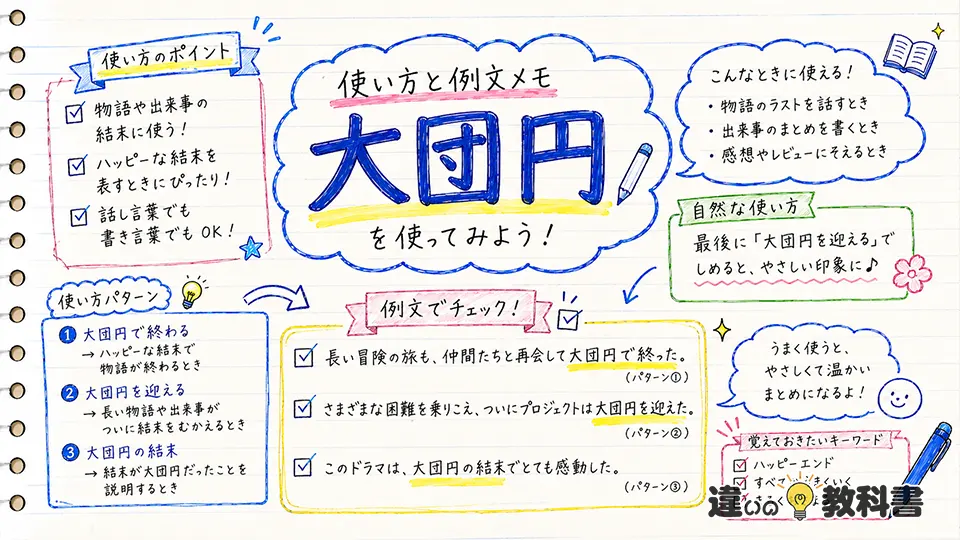 使い方のポイント
物語や出来事の
結末に使う！
ハッピーな結末を
表すときにぴったり！
話し言葉でも
書き言葉でも OK！
使い方と例文メモ
大団円
を使ってみよう！
こんなときに使える！
・物語のラストを話すとき
・出来事のまとめを書くとき
・感想やレビューにそえるとき
自然な使い方
最後に「大団円を迎える」で
しめると、やさしい印象に♪
使い方パターン
1 大団円で終わる
→ ハッピーな結末で
物語が終わるとき
2 大団円を迎える
→ 長い物語や出来事が
ついに結末をむかえるとき
3 大団円の結末
→ 結末が大団円だったことを
説明するとき
例文でチェック！
長い冒険の旅も、仲間たちと再会して大団円で終った。
（パターン①）
さまざまな困難を乗りこえ、ついにプロジェクトは大団円を迎えた。
（パターン②）
このドラマは、大団円の結末でとても感動した。
（パターン③）
うまく使うと、
やさしくて温かい
まとめになるよ！
覚えておきたいキーワード
ハッピーエンド
すべて まくいく
違いの教科書